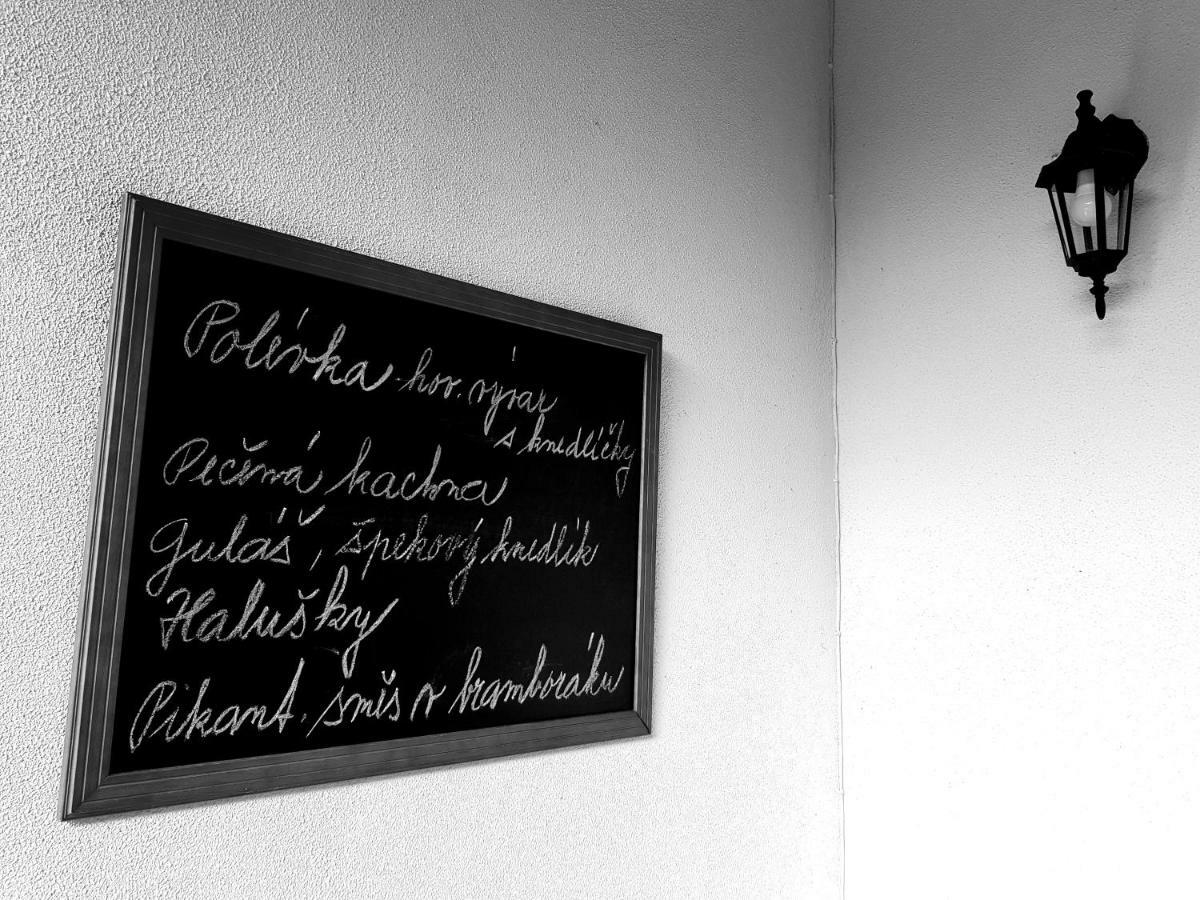 Polévka - hov. vývar
s knedlíčky
Pečená kachna
Guláš, špekový knedlík
Halušky
Pikant. směs v bramboráku